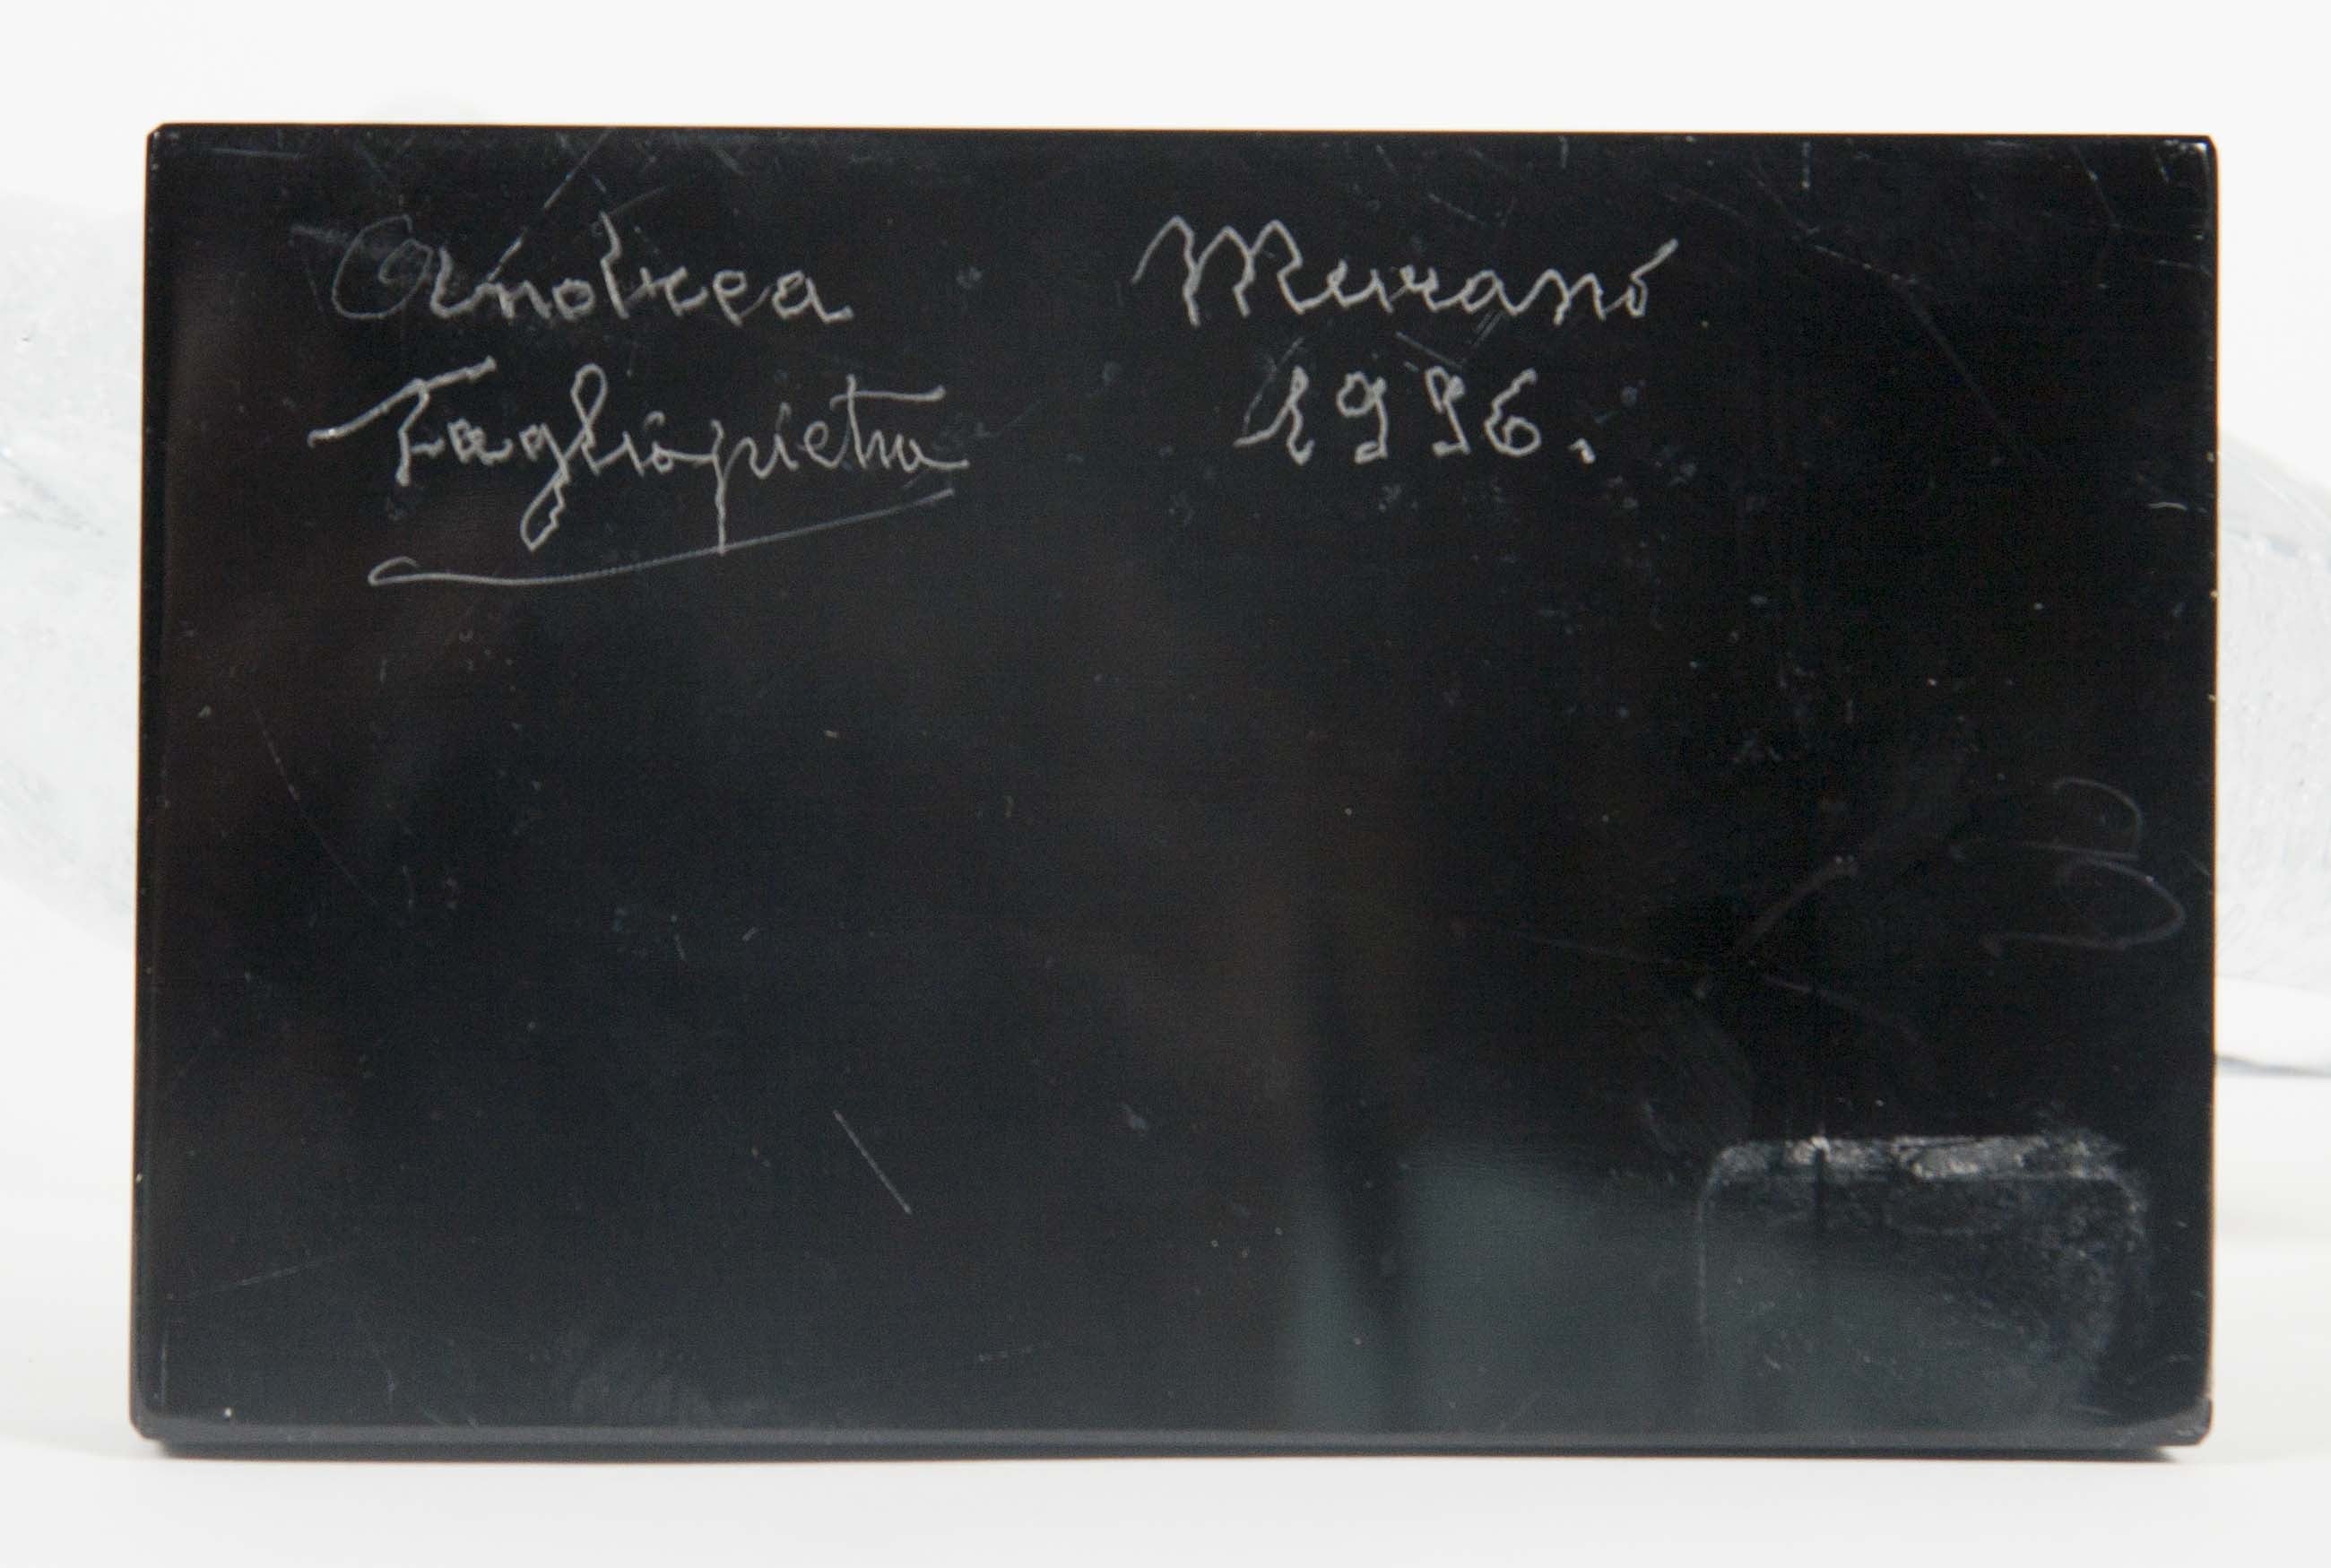 Andrea
Tagliapietra
Murano
1996.